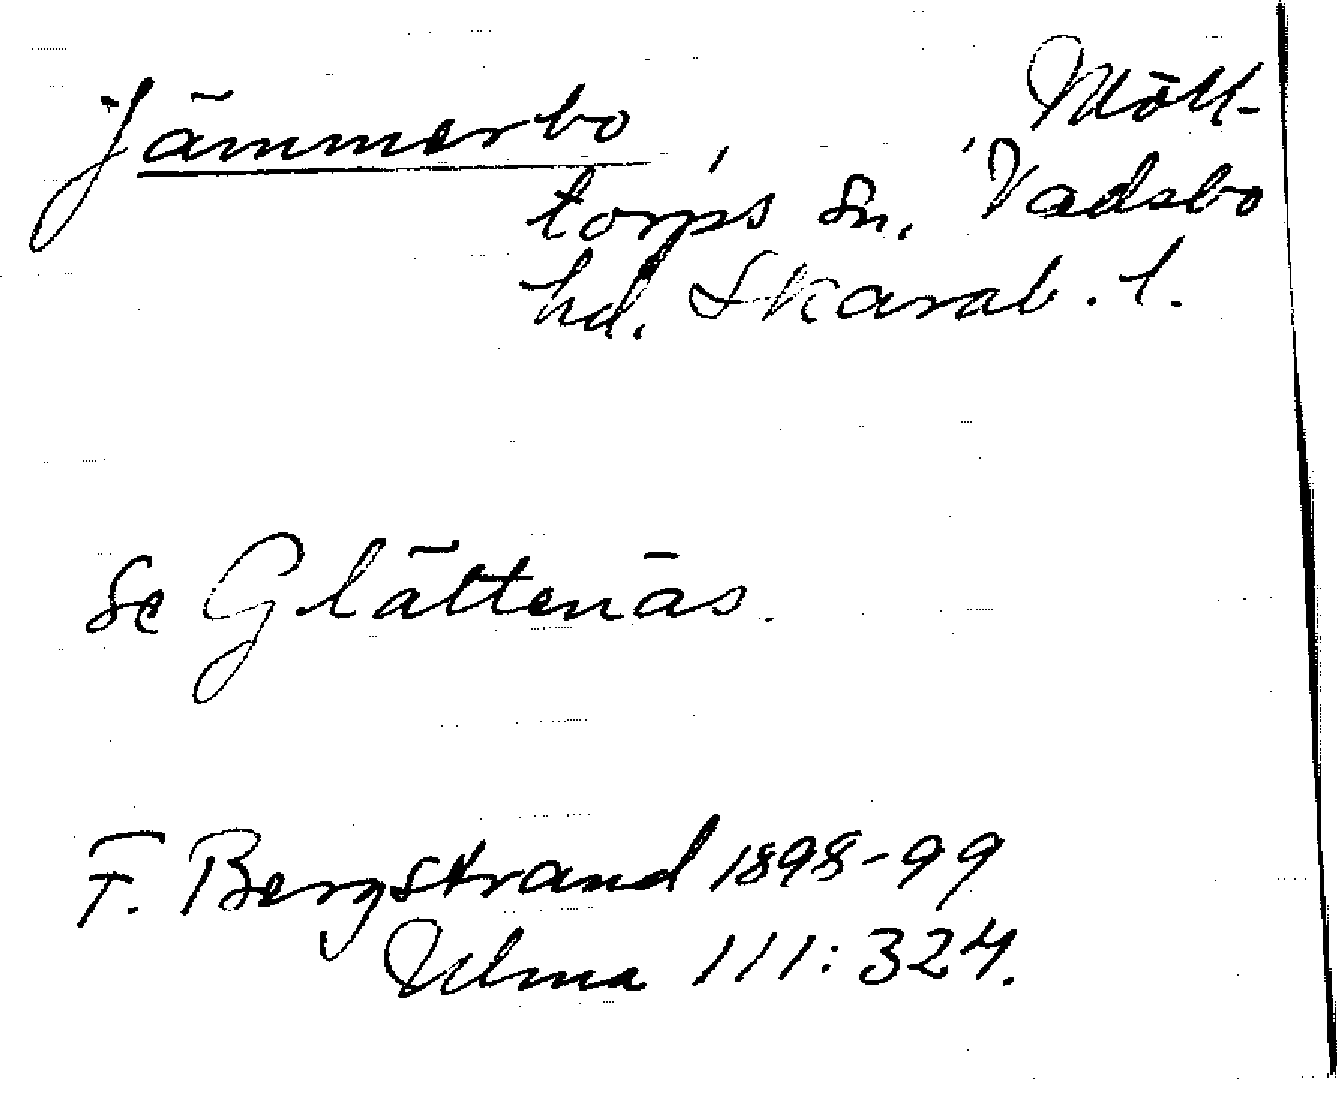 Jämmerbo, Möll-
torps sn, Vadsbo
hd. Skarab. l.
Se Glättenäs.
F. Bergstrand 1898-99
Ulma 111:324.